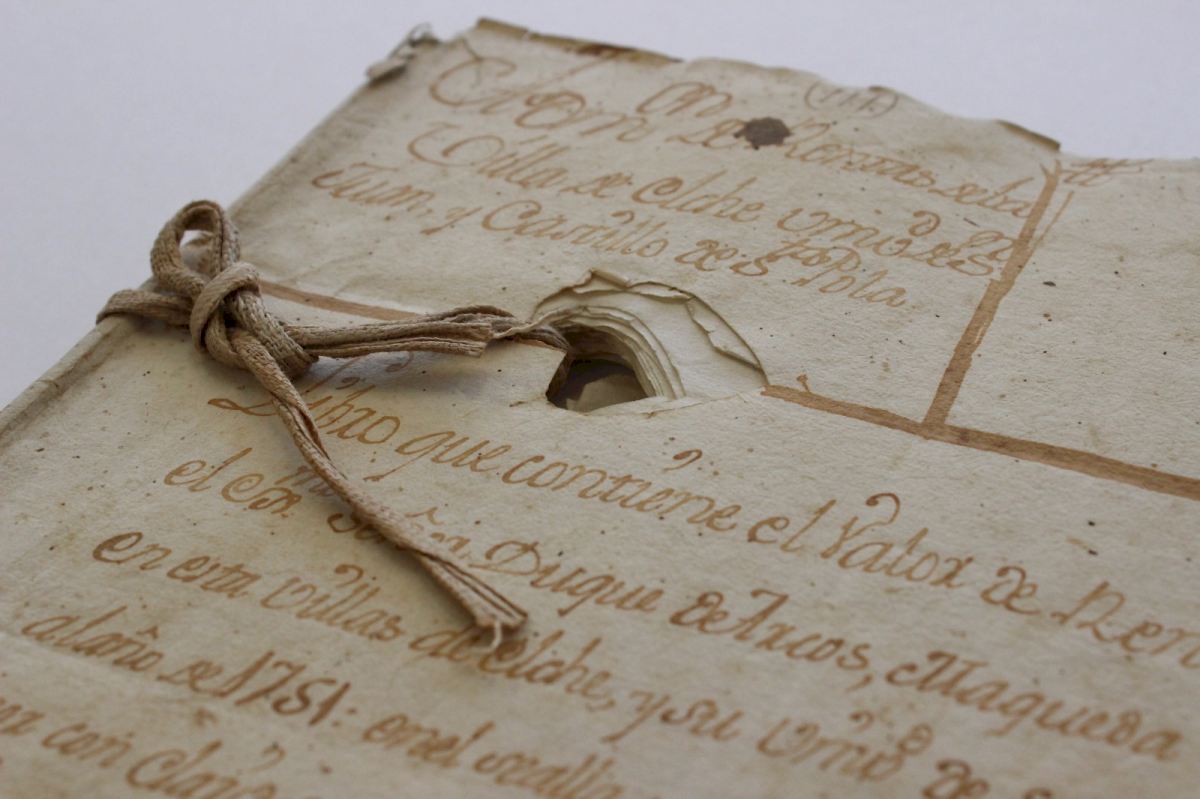 de Rentas de la
Villa de Elche Univ.d de S.n
Juan, y Castillo de S.ta Pola
Libro que contiene el Valor de Ren
el Ex.mo Señor Duque de Arcos, Maqueda
en esta villas de Elche, y su Univ.d de S
al año de 1751: en el se alla
con